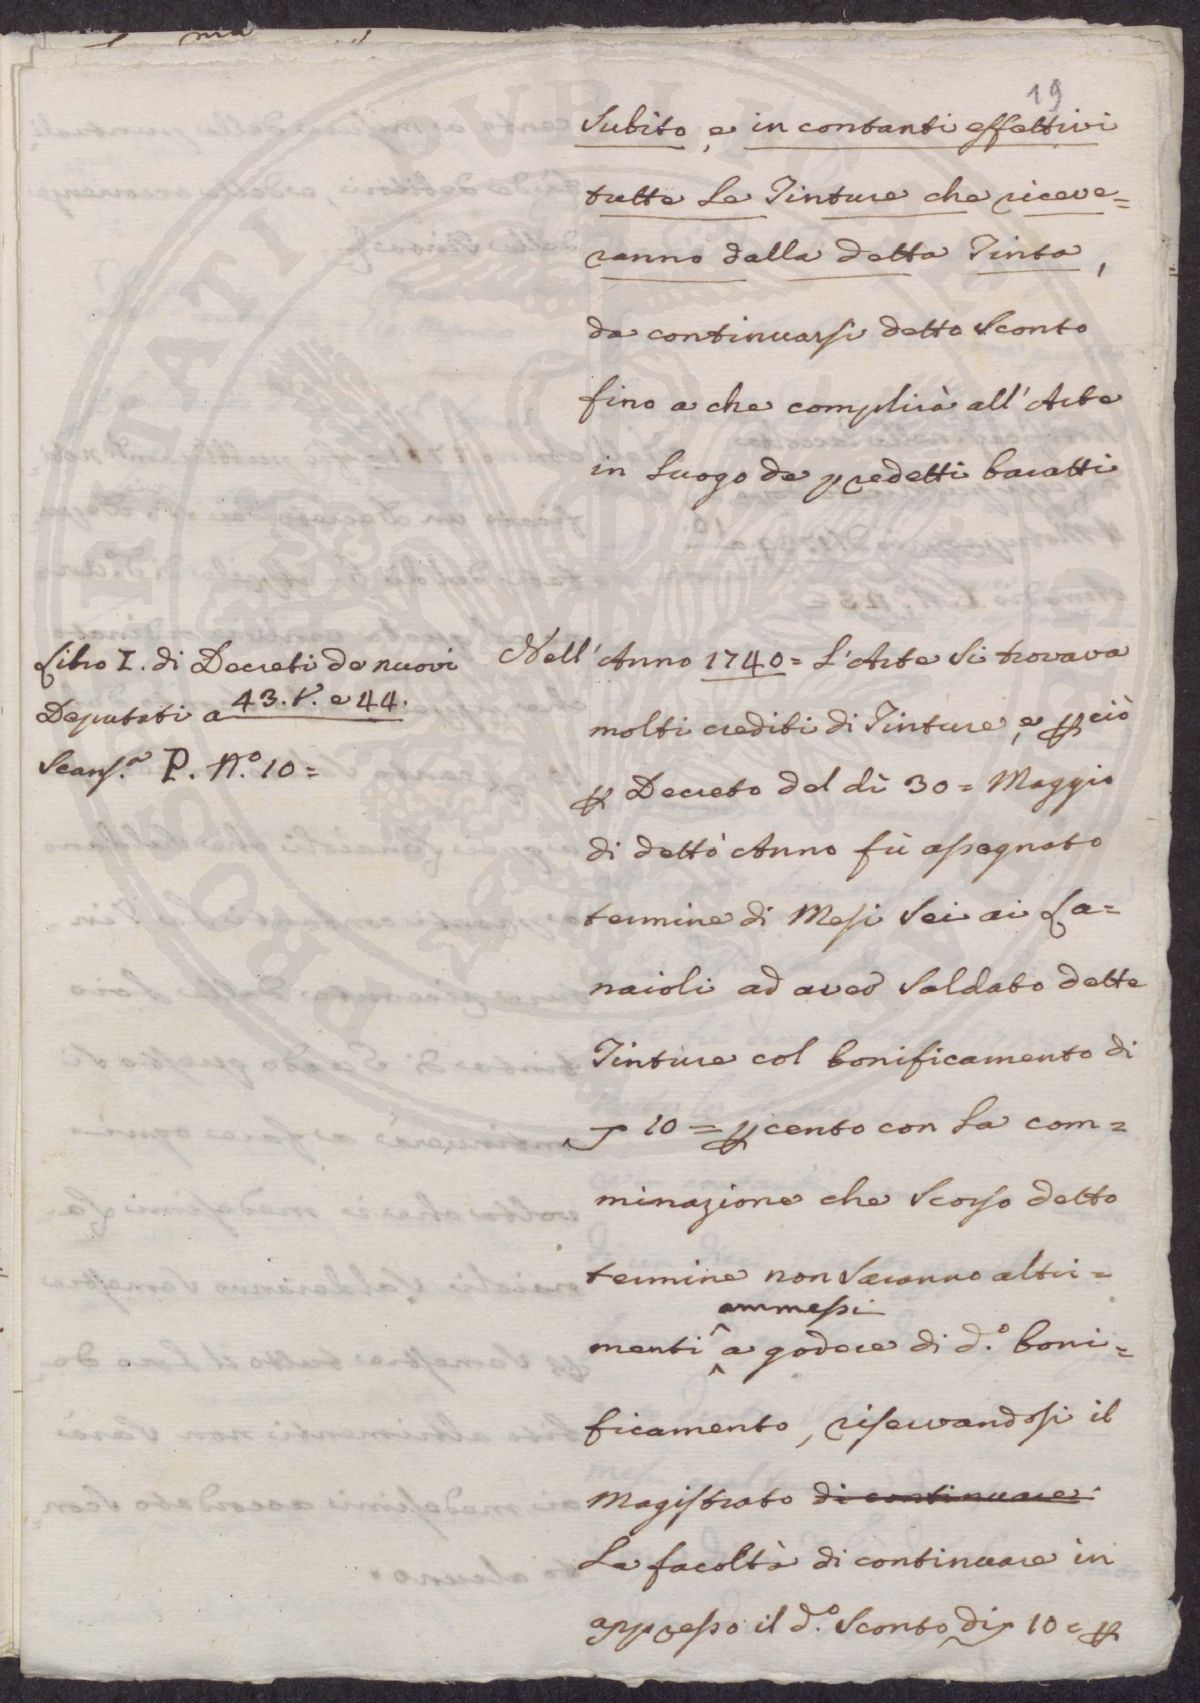 19
Subito, e in contanti effettivi
tutte le Tinture che riceve=
ranno dalla detta Tinta,
da continuarsi detto Sconto
fino a che complirà all'Arte
in luogo de predetti baratti
Libro I. di Decreti de nuovi
Deputati a 43. t. e 44.
Scans.ª P. N.º 10=
Nell'Anno 1740= L'Arte si trovava
molti crediti di Tinture, e p ciò
p Decreto del dì 30= Maggio
di detto Anno fù assegnato
termine di Mesi Sei ai La=
naioli ad aver Saldato dette
Tinture col bonificamento di
10= p cento con la com=
minazione che Scorso detto
termine non Saranno altri=
menti ammessi a godere di d.º boni=
ficamento, riservandosi il
Magistrato di continuare
La facoltà di continuare in
appresso il d.º Sconto di 10= p
PUBLICE